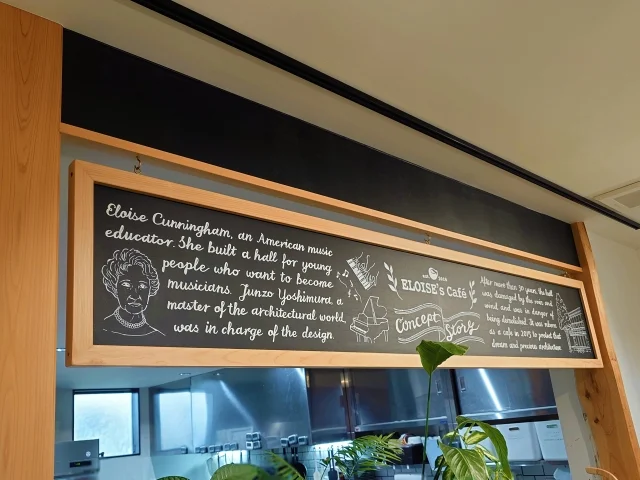 Eloise Cunningham, an American music
educator. She built a hall for young
people who want to become
musicians. Junzo Yoshimura, a
master of the architectural world,
was in charge of the design.
ELOISE's Café
Concept
Story
After more than 30 years, the hall
was damaged by the rain and
wind and was in danger of
being demolished. It was reborn
as a café in 2015 to protect that
dream and precious architecture.